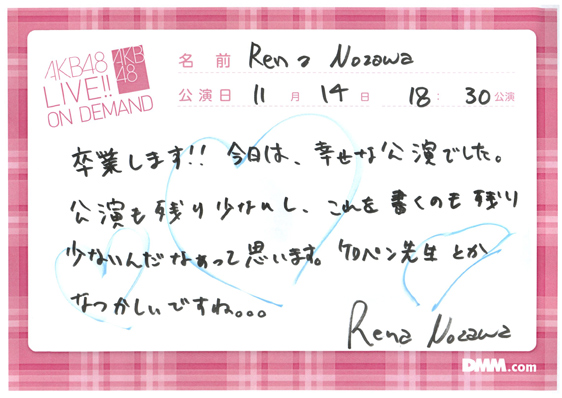 AKB48
LIVE!!
ON DEMAND
AKB
48
名前 Rena Nozawa
公演日 11月14日 18:30公演
卒業します!! 今日は、幸せな公演でした。
公演も残り少ないし、これを書くのも残り
少ないんだなぁって思います。ケロペン先生とか
なつかしいですね。。。
Rena Nozawa
DMM.com